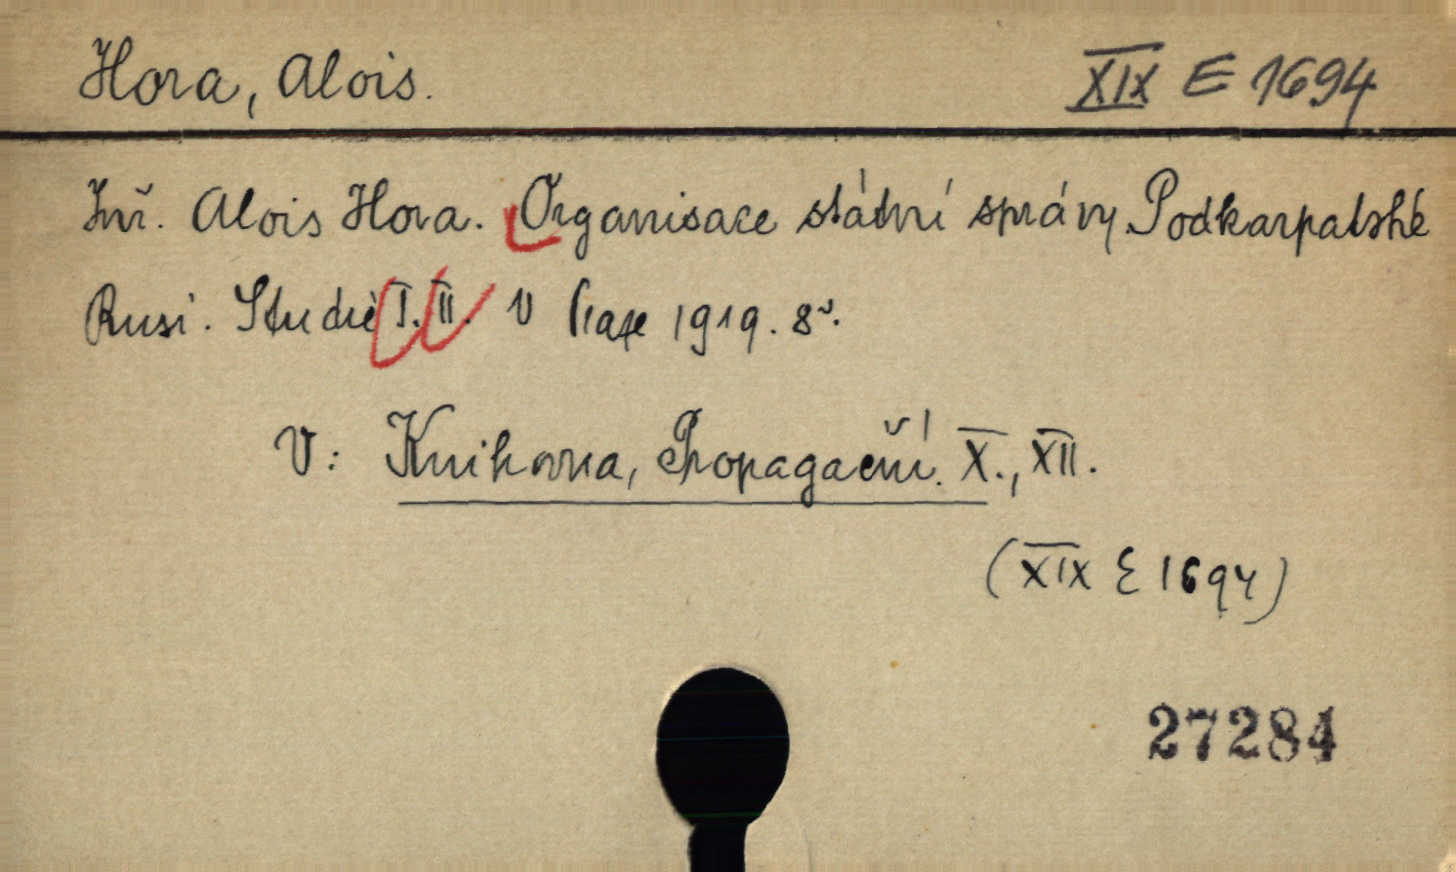 Hora, Alois.
XIX E 1694
Inž. Alois Hora. Organisace státní správy Podkarpatské
Rusi. Studie I. II. V Praze 1919. 8°.
V: Knihovna, Propagační. X., XII.
(XIX E 1694)
27284